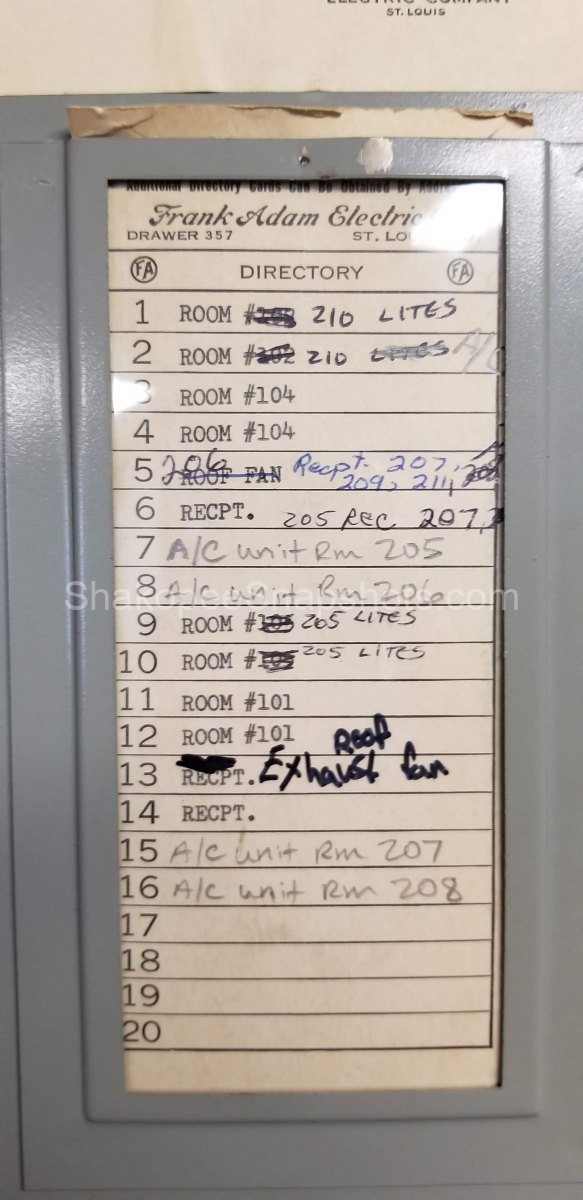 ELECTRIC COMPANY
ST. LOUIS
Additional Directory Cards Can Be Obtained By
Frank Adam Electric
DRAWER 357 ST. LO
FA DIRECTORY FA
1 ROOM # 210 LITES
2 ROOM # 210 LITES A/C
3 ROOM #104
4 ROOM #104
5 206 ROOF FAN Recpt. 207,
209, 211,
6 RECPT. 205 REC 207,
7 A/C unit Rm 205
8 A/C unit Rm 206
ShakopeeSnapshots.com
9 ROOM #105 205 LITES
10 ROOM #105 205 LITES
11 ROOM #101
12 ROOM #101 Roof
13 RECPT. Exhaust fan
14 RECPT.
15 A/C unit Rm 207
16 A/C unit Rm 208
17
18
19
20